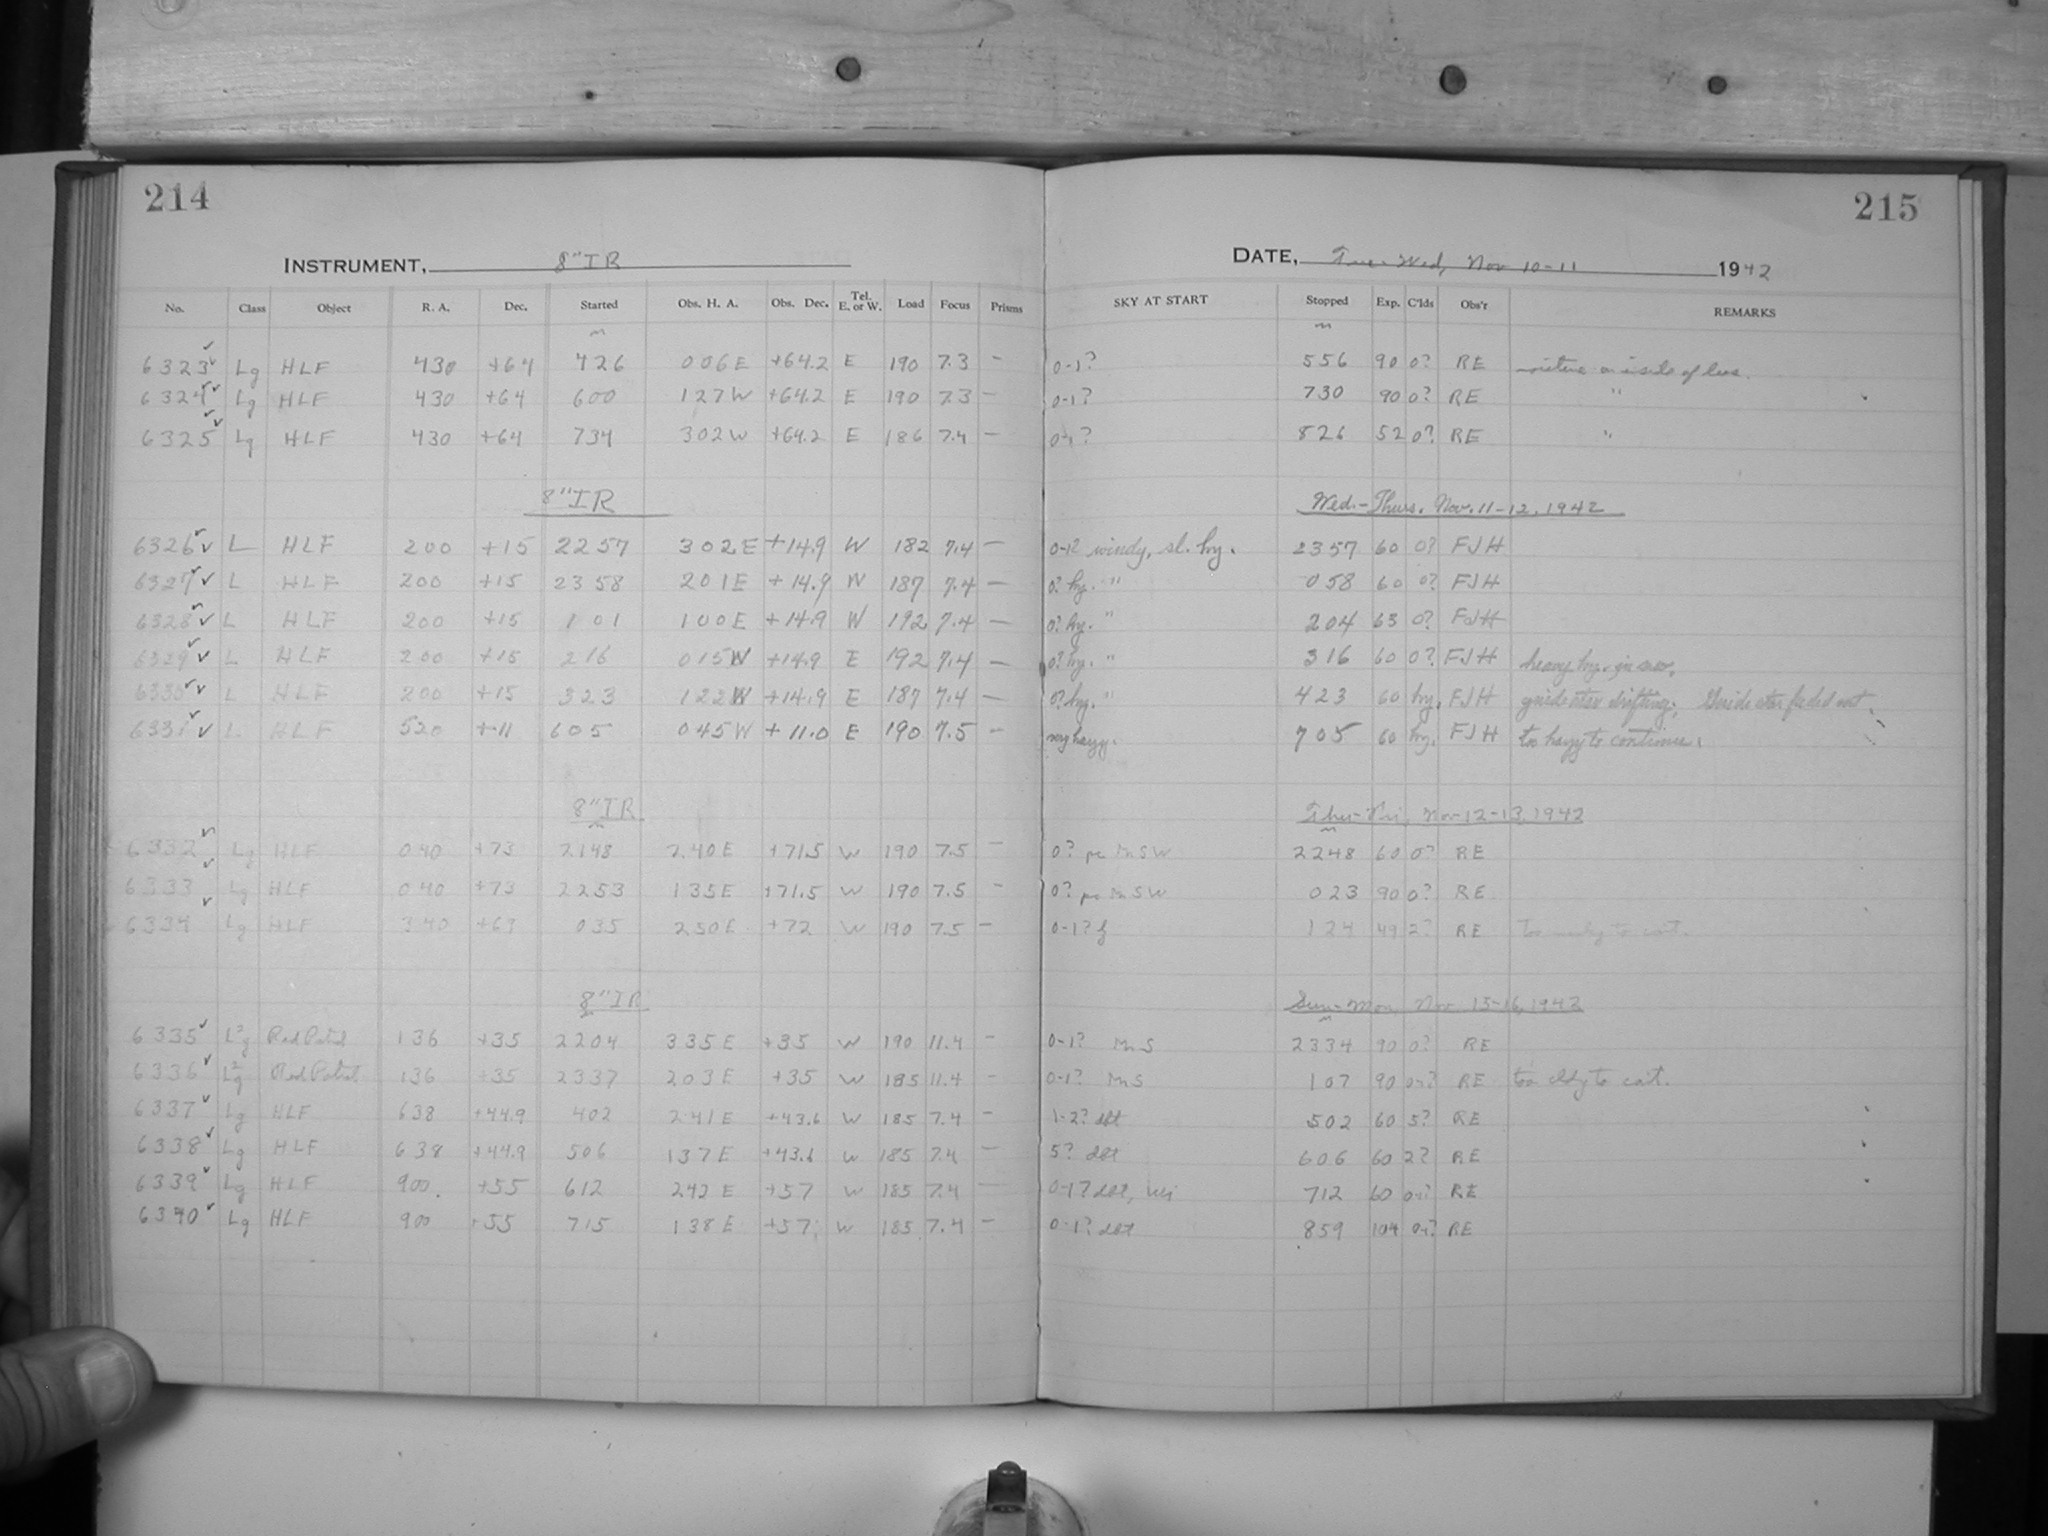 214
215
INSTRUMENT, 8"IR
DATE, Tue-Wed, Nov 10-11 1942
No. Class Object R. A. Dec. Started Obs. H. A. Obs. Dec. Tel. E. or W. Load Focus Prisms SKY AT START Stopped Exp. C'lds Obs'r REMARKS
m m
6323 Lg HLF 430 +64 426 006E +64.2 E 190 7.3 - 0-1? 556 90 0? RE moisture on inside of lens.
6324 Lg HLF 430 +64 600 127W +64.2 E 190 7.3 - 0-1? 730 90 0? RE "
6325 Lg HLF 430 +64 734 302W +64.2 E 186 7.4 - 0-1? 826 52 0? RE "
8"IR Wed.-Thurs. Nov. 11-12, 1942
6326 L HLF 200 +15 2257 302E +14.9 W 182 7.4 - 0-1? windy, sl. hzy. 2357 60 0? FJH
6327 L HLF 200 +15 2358 201E +14.9 W 187 7.4 - 0? hzy. " 058 60 0? FJH
6328 L HLF 200 +15 101 100E +14.9 W 192 7.4 - 0? hzy. " 204 63 0? FJH
6329 L HLF 200 +15 216 015W +14.9 E 192 7.4 - 0? hzy. " 316 60 0? FJH heavy hzy.
6330 L HLF 200 +15 323 122W +14.9 E 187 7.4 - 0? hzy. " 423 60 hzy. FJH guide star drifting; Guide star faded out.
6331 L HLF 520 +11 605 045W +11.0 E 190 7.5 - very hazy. 705 60 hzy. FJH too hazy to continue.
8"IR Thu-Fri, Nov 12-13, 1942
m m
6332 Lg HLF 040 +73 2148 240E +71.5 W 190 7.5 - 0? MnSW 2248 60 0? RE
6333 Lg HLF 040 +73 2253 135E +71.5 W 190 7.5 - 0? MnSW 023 90 0? RE
6334 Lg HLF 340 +63 035 250E +72 W 190 7.5 - 0-1? f 124 49 2? RE Too cldy to cont.
8"IR Sun-Mon, Nov 15-16, 1942
m m
6335 L²g Red Patrol 136 +35 2204 335E +35 W 190 11.4 - 0-1? MnS 2334 90 0? RE
6336 L²g Red Patrol 136 +35 2337 203E +35 W 185 11.4 - 0-1? MnS 107 90 0-1? RE too cldy to cont.
6337 Lg HLF 638 +44.9 402 241E +43.6 W 185 7.4 - 1-2? dbt 502 60 5? RE
6338 Lg HLF 638 +44.9 506 137E +43.6 W 185 7.4 - 5? dbt 606 60 2? RE
6339 Lg HLF 900 +55 612 242E +57 W 185 7.4 - 0-1? dbt, 712 60 0-1? RE
6340 Lg HLF 900 +55 715 138E +57 W 185 7.4 - 0-1? dbt 859 104 0-1? RE